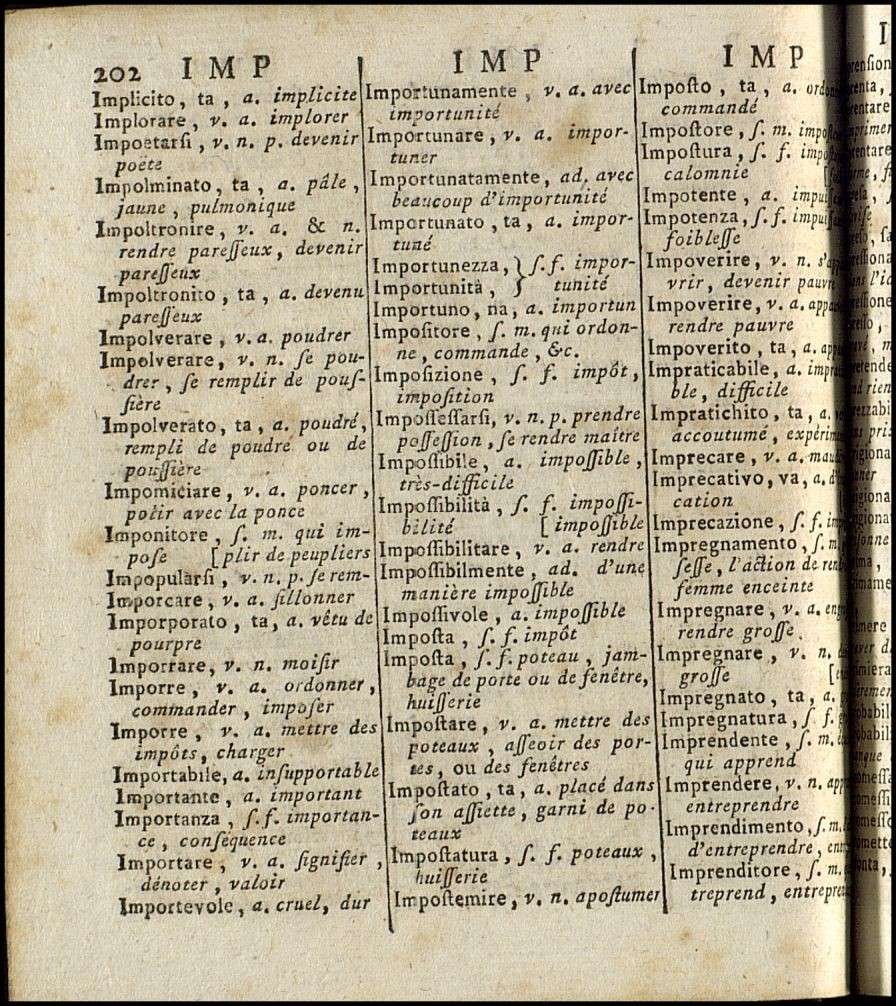 202 IMP
Implicito, ta, a. implicite
Implorare, v. a. implorer
Impoetarsi, v. n. p. devenir
poëte
Impolminato, ta, a. pâle,
jaune, pulmonique
Impoltronire, v. a. & n.
rendre paresseux, devenir
paresseux
Impoltronito, ta, a. devenu
paresseux
Impolverare, v. a. poudrer
Impolverare, v. n. se pou-
drer, se remplir de pous-
sière
Impolverato, ta, a. poudré,
rempli de poudre ou de
poussière
Impomiciare, v. a. poncer,
polir avec la ponce
Imponitore, s. m. qui im-
pose [plir de peupliers
Impopularsi, v. n. p. se rem-
Imporcare, v. a. sillonner
Imporporato, ta, a. vêtu de
pourpre
Imporrare, v. n. moisir
Imporre, v. a. ordonner,
commander, imposer
Imporre, v. a. mettre des
impôts, charger
Importabile, a. insupportable
Importante, a. important
Importanza, s. f. importan-
ce, conséquence
Importare, v. a. signifier,
dénoter, valoir
Importevole, a. cruel, dur
IMP
Importunamente, v. a. avec
importunité
Importunare, v. a. impor-
tuner
Importunatamente, ad. avec
beaucoup d'importunité
Importunato, ta, a. impor-
tuné
Importunezza, } s. f. impor-
Importunità, } tunité
Importuno, na, a. importun
Impositore, s. m. qui ordon-
ne, commande, &c.
Imposizione, s. f. impôt,
imposition
Impossessarsi, v. n. p. prendre
possession, se rendre maître
Impossibile, a. impossible,
très-difficile
Impossibilità, s. f. impossi-
bilité [impossible
Impossibilitare, v. a. rendre
Impossibilmente, ad. d'une
manière impossible
Impossivole, a. impossible
Imposta, s. f. impôt
Imposta, s. f. poteau, jam-
bage de porte ou de fenêtre,
huisserie
Impostare, v. a. mettre des
poteaux, asseoir des por-
tes, ou des fenêtres
Impostato, ta, a. placé dans
son assiette, garni de po-
teaux
Impostatura, s. f. poteaux,
huisserie
Impostemire, v. n. apostumer
IMP
Imposto, ta, a.
commandé
Impostore, s. m.
Impostura, s. f.
calomnie
Impotente, a.
Impotenza, s. f.
foiblesse
Impoverire, v. n.
vrir, devenir pauvre
Impoverire, v. a.
rendre pauvre
Impoverito, ta, a.
Impraticabile, a.
ble, difficile
Impratichito, ta, a.
accoutumé,
Imprecare, v. a.
Imprecativo, va, a.
cation
Imprecazione, s. f.
Impregnamento, s. m.
sesse, l'action de
femme enceinte
Impregnare, v. a.
rendre grosse.
Impregnare, v. n.
grosse
Impregnato, ta, a.
Impregnatura, s. f.
Imprendente, s. m.
qui apprend
Imprendere, v. n.
entreprendre
Imprendimento, s. m.
d'entreprendre,
Imprenditore, s. m.
treprend,